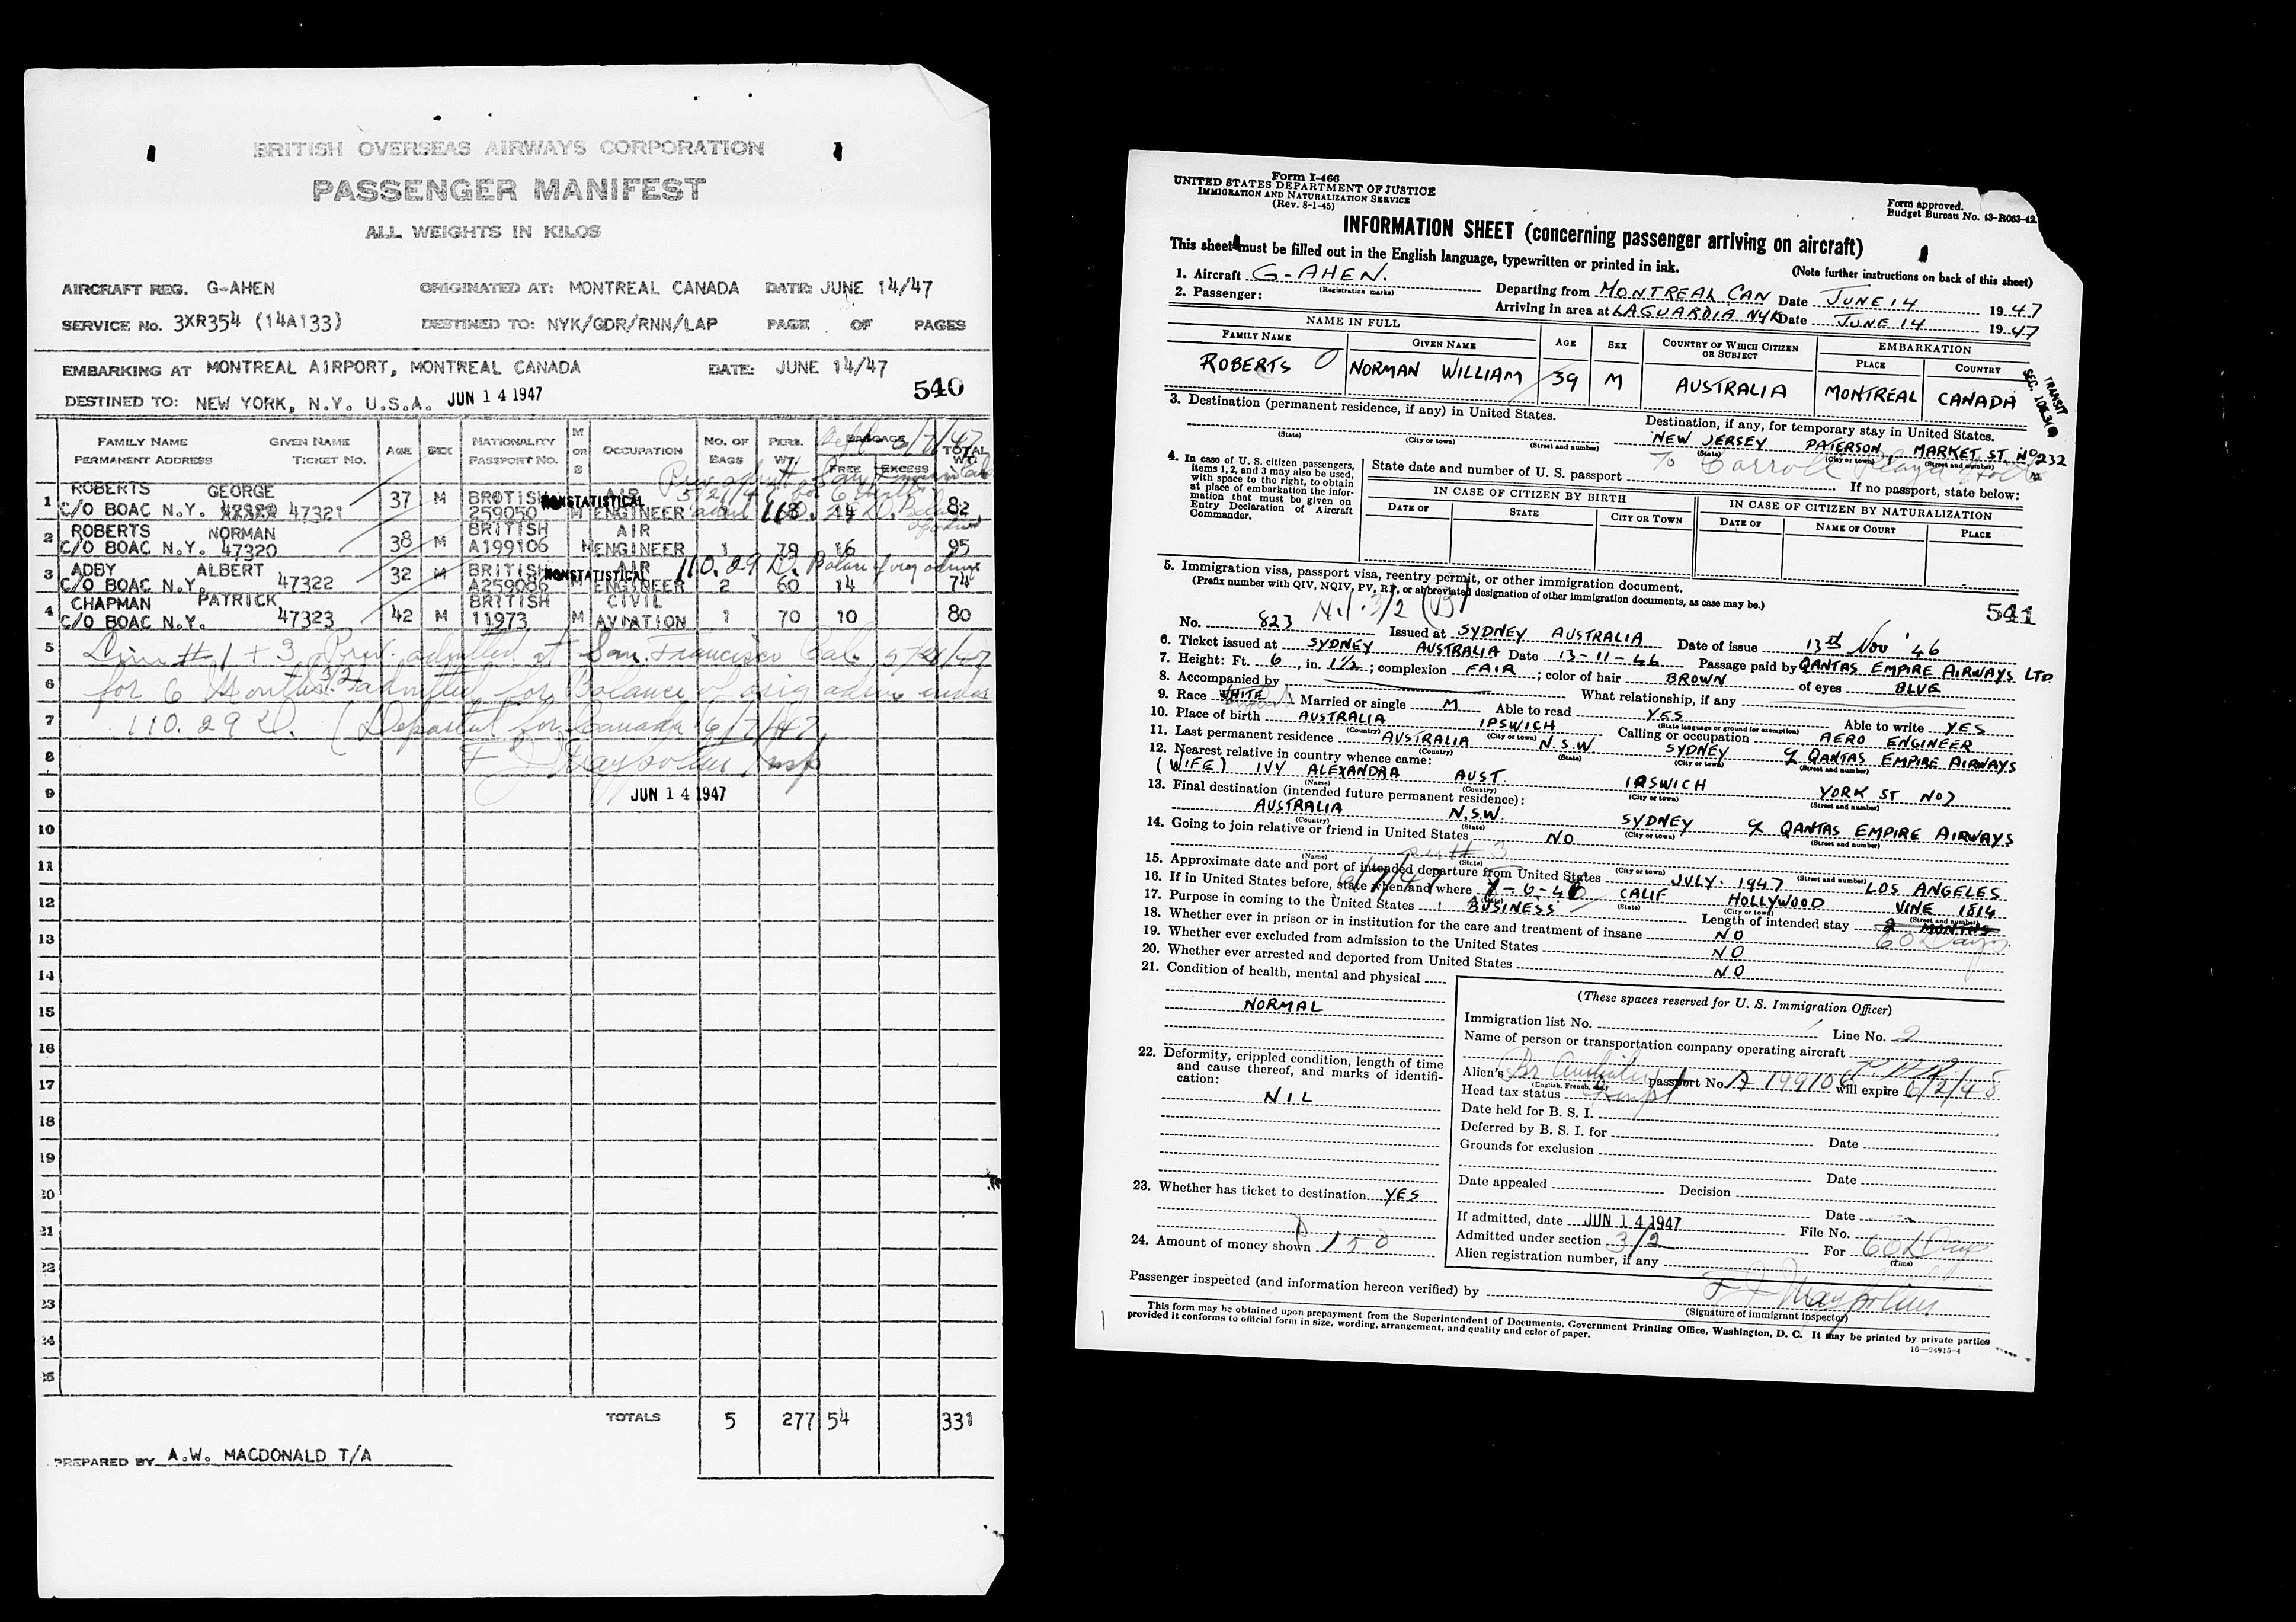 BRITISH OVERSEAS AIRWAYS CORPORATION
PASSENGER MANIFEST
ALL WEIGHTS IN KILOS
AIRCRAFT REG. G-AHEN ORIGINATED AT: MONTREAL CANADA DATE: JUNE 14/47
SERVICE No. 3XR354 (14A133) DESTINED TO: NYK/GDR/RNN/LAP PAGE . OF PAGES
EMBARKING AT MONTREAL AIRPORT, MONTREAL CANADA DATE: JUNE 14/47
DESTINED TO: NEW YORK, N.Y. U.S.A. JUN 14 1947 540
FAMILY NAME GIVEN NAME AGE SEX NATIONALITY M OCCUPATION NO. OF PERS. BAGGAGE TOTAL
PERMANENT ADDRESS TICKET NO. PASSPORT NO. OR S BAGS WT. FREE EXCESS WT.
1 ROBERTS GEORGE 37 M BROTISH NONSTATISTICAL AIR
C/O BOAC N.Y. 47321 259050 M ENGINEER 68 14 82
2 ROBERTS NORMAN 38 M BRITISH AIR
C/O BOAC N.Y. 47320 A199106 M ENGINEER 1 79 16 95
3 ADBY ALBERT 32 M BRITISH NONSTATISTICAL AIR 110.29 D. Balance of orig admis
C/O BOAC N.Y. 47322 A259086 M ENGINEER 2 60 14 74
4 CHAPMAN PATRICK 42 M BRITISH CIVIL
C/O BOAC N.Y. 47323 11973 M AVIATION 1 70 10 80
5 Line #1 + 3 Prev. admitted at San Francisco Cal 5/21/47
6 for 6 Months. admitted for Balance of orig admis under
7 110.29 D. (Departed for Canada 6/7/47)
8
9 JUN 14 1947
10
11
12
13
14
15
16
17
18
19
20
21
22
23
24
25
TOTALS 5 277 54 331
PREPARED BY A.W. MACDONALD T/A
Form I-466
UNITED STATES DEPARTMENT OF JUSTICE
IMMIGRATION AND NATURALIZATION SERVICE
(Rev. 8-1-45)
Form approved.
Budget Bureau No. 43-R063-42.
INFORMATION SHEET (concerning passenger arriving on aircraft)
This sheet must be filled out in the English language, typewritten or printed in ink.
(Note further instructions on back of this sheet)
1. Aircraft G-AHEN. Departing from MONTREAL CAN Date JUNE 14 1947
(Registration marks)
2. Passenger: Arriving in area at LAGUARDIA NYK Date JUNE 14 1947
NAME IN FULL AGE SEX COUNTRY OF WHICH CITIZEN OR SUBJECT EMBARKATION
FAMILY NAME GIVEN NAME PLACE COUNTRY
ROBERTS NORMAN WILLIAM 39 M AUSTRALIA MONTREAL CANADA
TRANSIT
3. Destination (permanent residence, if any) in United States. Destination, if any, for temporary stay in United States.
NEW JERSEY PATERSON, MARKET ST Nº232
(State) (City or town) (Street and number) (State) (City or town) (Street and number)
4. In case of U. S. citizen passengers, items 1, 2, and 3 may also be used, with space to the right, to obtain at place of embarkation the information that must be given on Entry Declaration of Aircraft Commander.
State date and number of U. S. passport If no passport, state below:
IN CASE OF CITIZEN BY BIRTH IN CASE OF CITIZEN BY NATURALIZATION
DATE OF STATE CITY OR TOWN DATE OF NAME OF COURT PLACE
5. Immigration visa, passport visa, reentry permit, or other immigration document.
(Prefix number with QIV, NQIV, PV, RP, or abbreviated designation of other immigration documents, as case may be.) 541
No. 823 Issued at SYDNEY AUSTRALIA Date of issue 13th Nov '46
6. Ticket issued at SYDNEY AUSTRALIA Date 13-11-46 Passage paid by QANTAS EMPIRE AIRWAYS LTD
7. Height: Ft. 6, in. 1½; complexion FAIR; color of hair BROWN of eyes BLUE
8. Accompanied by What relationship, if any
9. Race WHITE Married or single M Able to read YES Able to write YES
(State language or ground for exemption)
10. Place of birth AUSTRALIA IPSWICH Calling or occupation AERO ENGINEER
(Country) (City or town)
11. Last permanent residence AUSTRALIA N.S.W SYDNEY c/o QANTAS EMPIRE AIRWAYS
(Country) (State) (City or town) (Street and number)
12. Nearest relative in country whence came:
(WIFE) IVY ALEXANDRA AUST. IPSWICH YORK ST NO7
(Name) (Country) (City or town) (Street and number)
13. Final destination (intended future permanent residence):
AUSTRALIA N.S.W. SYDNEY c/o QANTAS EMPIRE AIRWAYS
(Country) (State) (City or town) (Street and number)
14. Going to join relative or friend in United States NO
(Name) (State) (City or town) (Street and number)
15. Approximate date and port of intended departure from United States JULY. 1947 LOS ANGELES
16. If in United States before, state when and where CALIF HOLLYWOOD VINE 1814
(Date) (State) (City or town) (Street and number)
17. Purpose in coming to the United States BUSINESS Length of intended stay 2 MONTHS 60 Days
18. Whether ever in prison or in institution for the care and treatment of insane NO
19. Whether ever excluded from admission to the United States NO
20. Whether ever arrested and deported from United States NO
21. Condition of health, mental and physical
NORMAL
22. Deformity, crippled condition, length of time and cause thereof, and marks of identification:
NIL
23. Whether has ticket to destination YES
24. Amount of money shown 150
(These spaces reserved for U. S. Immigration Officer)
Immigration list No. Line No. 2
Name of person or transportation company operating aircraft
Alien's passport No. A 199106 will expire 6/2/48
(English, French, etc.)
Head tax status Exempt
Date held for B. S. I.
Deferred by B. S. I. for Date
Grounds for exclusion
Date
Date appealed Decision
Date
If admitted, date JUN 14 1947 File No.
Admitted under section 3/2 For 60 Days
(Time)
Alien registration number, if any
Passenger inspected (and information hereon verified) by
(Signature of immigrant inspector)
This form may be obtained upon prepayment from the Superintendent of Documents, Government Printing Office, Washington, D. C. It may be printed by private parties
provided it conforms to official form in size, wording, arrangement, and quality and color of paper.
16—24915-4